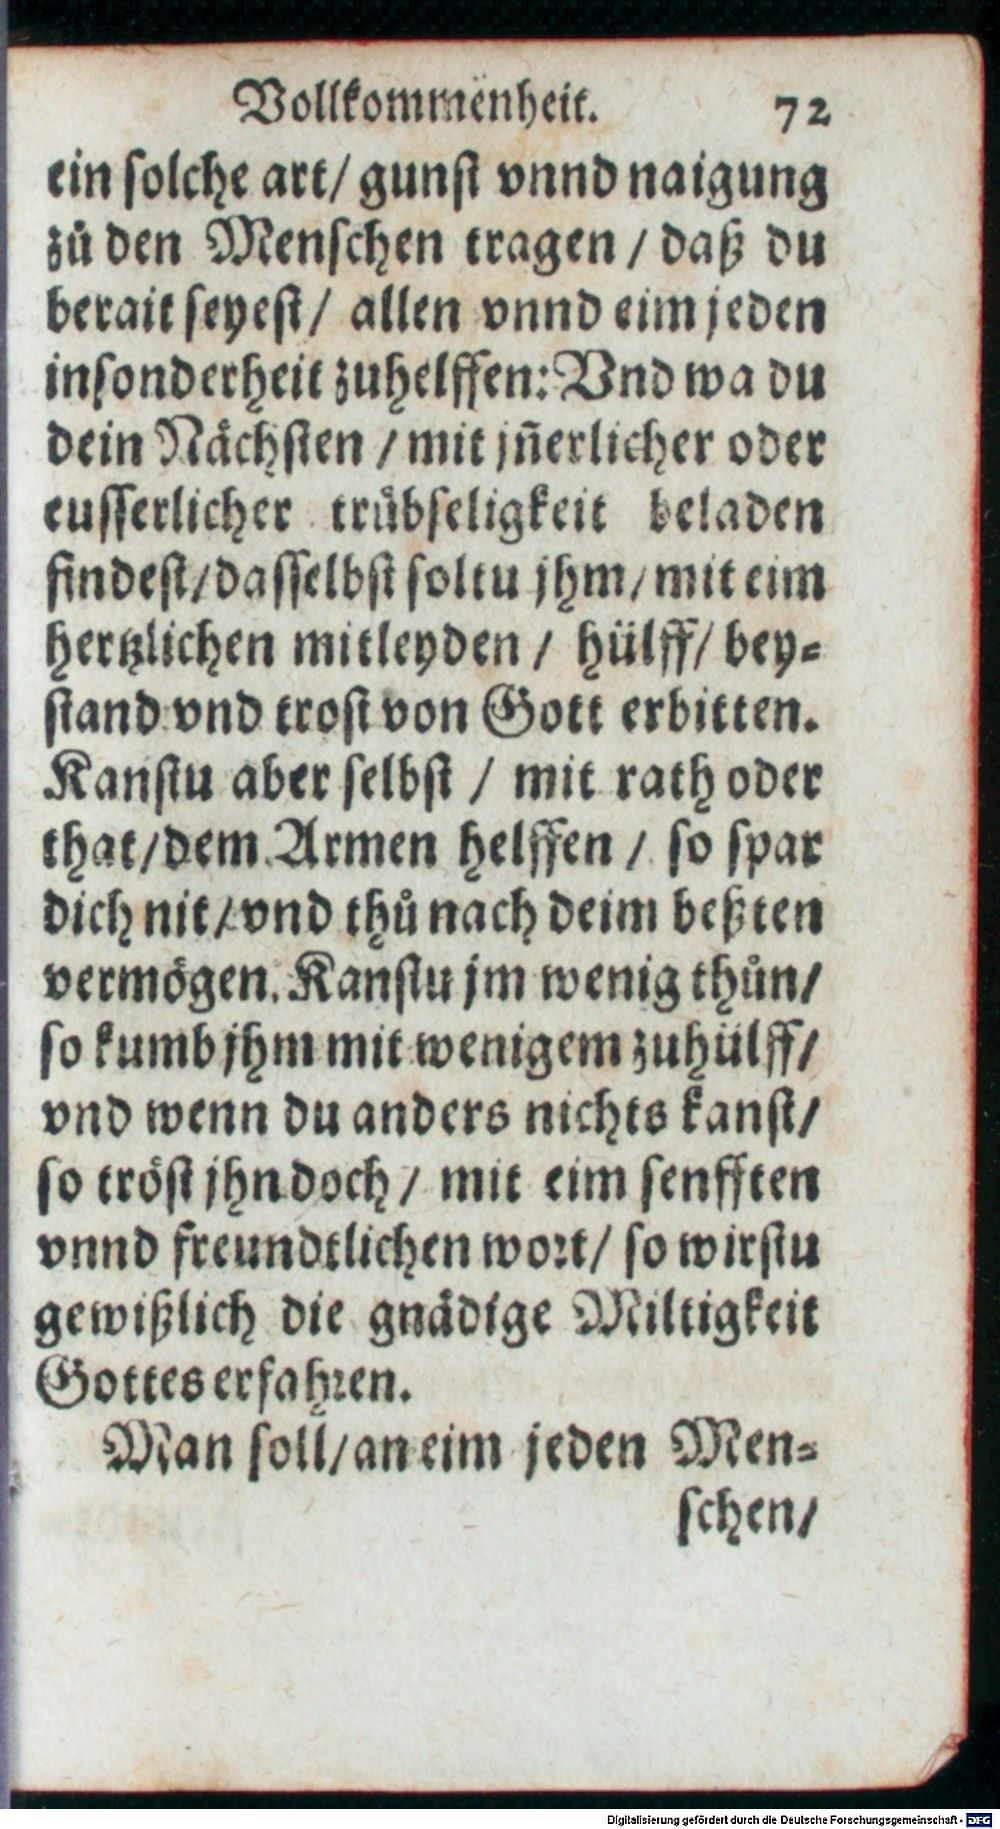 Vollkommenheit. 72
ein solche art/ gunst vnnd naigung
zů den Menschen tragen / daß du
berait seyest/ allen vnnd eim jeden
insonderheit zuhelffen: Vnd wa du
dein Nächsten / mit jñerlicher oder
eusserlicher trübseligkeit beladen
findest/dasselbst soltu jhm/mit eim
hertzlichen mitleyden / hülff/ bey-
stand vnd trost von Gott erbitten.
Kanstu aber selbst / mit rath oder
that/dem Armen helffen / so spar
dich nit/vnd thů nach deim beßten
vermögen. Kanstu jm wenig thůn/
so kumb jhm mit wenigem zuhülff/
vnd wenn du anders nichts kanst/
so tröst jhn doch / mit eim senfften
vnnd freundtlichen wort/ so wirstu
gewißlich die gnädige Miltigkeit
Gottes erfahren.
Man soll/an eim jeden Men-
schen/
Digitalisierung gefördert durch die Deutsche Forschungsgemeinschaft - DFG